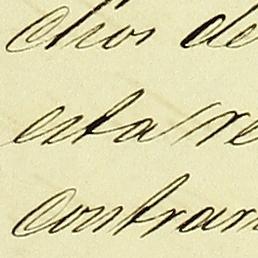 chos de
esta re
contrar